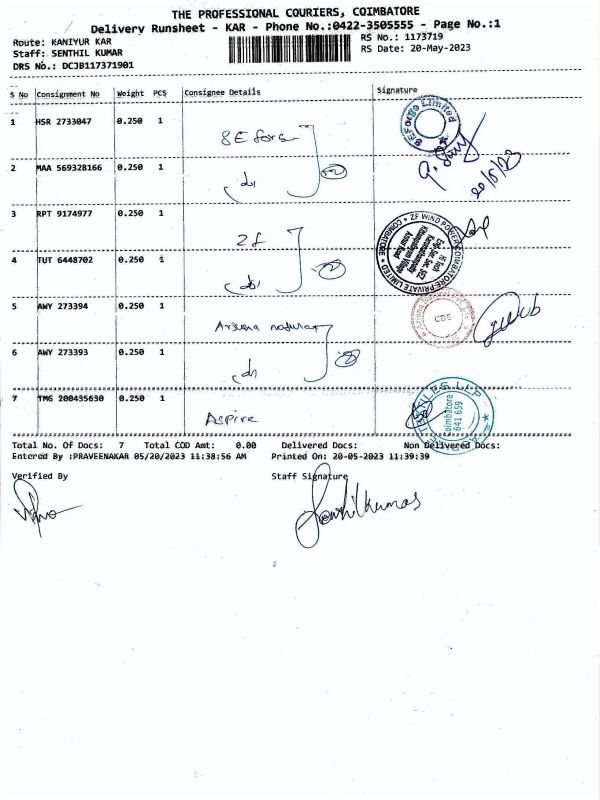 THE PROFESSIONAL COURIERS, COIMBATORE
Delivery Runsheet - KAR - Phone No.:0422-3505555 - Page No.:1
Route: KANIYUR KAR
RS No.: 1173719
Staff: SENTHIL KUMAR
RS Date: 20-May-2023
DRS No.: DCJB117371901
S No Consignment No Weight PCS Consignee Details Signature
1 HSR 2733047 0.250 1
SEForge Limited
20/5/23
2 MAA 569328166 0.250 1
3 RPT 9174977 0.250 1
ZF
ZF WIND POWER COIMBATORE PRIVATE LIMITED * COIMBATORE *
4 TUT 6448702 0.250 1
5 AWY 273394 0.250 1
Arjuna natural
CBE
6 AWY 273393 0.250 1
7 TMG 200435630 0.250 1
Aspire
Coimbatore
641 659
Total No. Of Docs: 7 Total COD Amt: 0.00 Delivered Docs: Non Delivered Docs:
Entered By :PRAVEENAKAR 05/20/2023 11:38:56 AM Printed On: 20-05-2023 11:39:39
Verified By Staff Signature
Senthilkumar